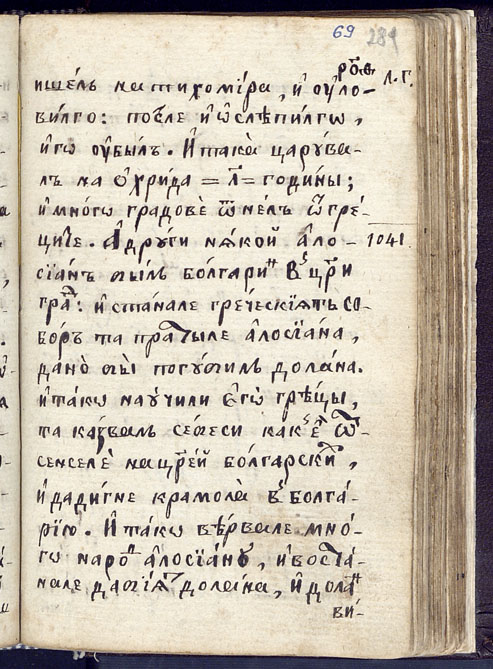 69 289
рⷪ҇є л҃г
ишѐлъ на тихомі́ра, и҆ оу҆ло-
ви́лго: по́сле и҆ ѡ҆слѣпи́лгѡ,
и҆го оу҆бы́лъ. И҆ такà царꙋва-
лъ на о҆́хрида = л҃ = годи́ны;
и҆ мно́гѡ градовѐ ѿне́лъ ѿ гре́-
циїе. А҆ дрꙋ́ги нѧ́кой а҆ло- 1041
сїа́нъ бы́лъ бо́лгариⷩ҇ в̾ цр҃и
граⷣ: и҆ ста́нале гре́ческїѧтъ со-
бо́ръ та пра́тыле а҆лосїа́на,
дано̀ бы̀ погꙋби́лъ долѧ́на.
и҆ та́кѡ наꙋ́чили є҆го̀ грѣ́цы,
та ка́звалъ се́беси как̾ є҆ ѿ-
сенселѐ на цр҃ей бо́лгарскиⷯ,
и҆ дади́гне крамола̀ в̾ болга́-
рїю. И҆ та́кѡ вѣ́рвале мно́-
гѡ нароⷣ а҆лосїа́нꙋ, и҆ воста́-
нале да бїѧ́ⷮ долѧ́на, и҆ долѧⷩ҇
ви́-